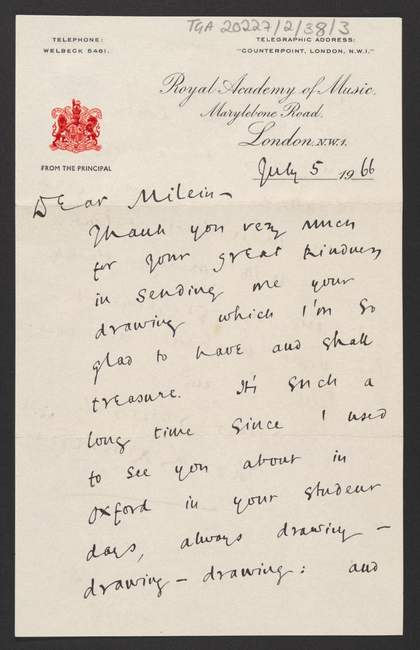 TGA 20227/2/38/3
TELEPHONE:
WELBECK 5461.
TELEGRAPHIC ADDRESS:
"COUNTERPOINT, LONDON, N.W.1."
Royal Academy of Music,
Marylebone Road,
London, N.W.1.
FROM THE PRINCIPAL
July 5 1966
Dear Milein –
Thank you very much
for your great kindness
in sending me your
drawing which I'm so
glad to have and shall
treasure. It's such a
long time since I used
to see you about in
Oxford in your student
days, always drawing –
drawing – drawing: and